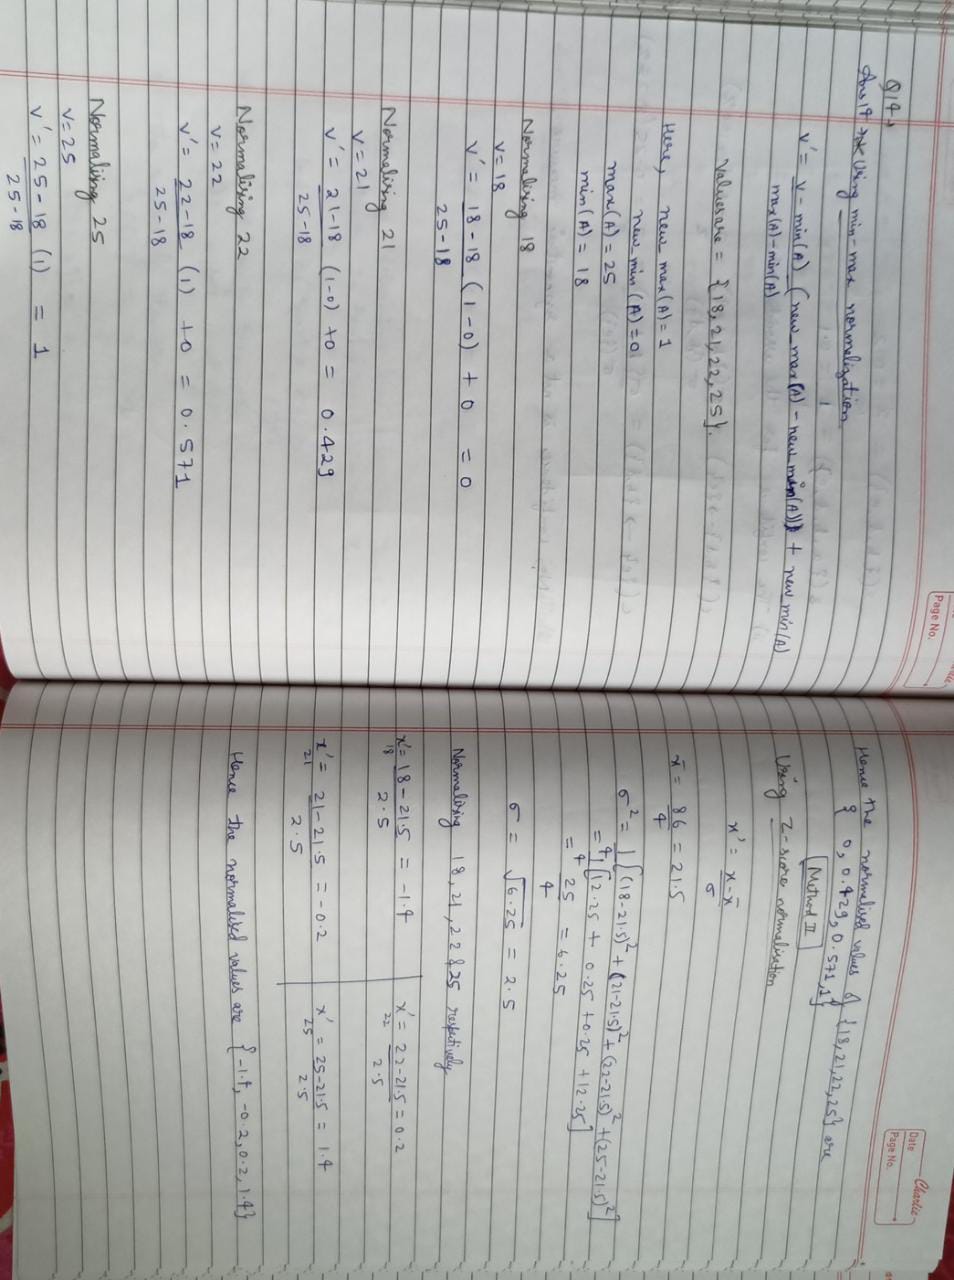 Page No.
Q14.
Ans14 → * Using min-max normalization
v' = v - min(A) (new_max(A) - new_min(A)) + new_min(A)
max(A) - min(A)
Values are = {18, 21, 22, 25}.
Here, new_max(A) = 1
new_min(A) = 0
max(A) = 25
min(A) = 18
Normalising 18
v = 18
v' = 18 - 18 (1 - 0) + 0 = 0
25 - 18
Normalising 21
v = 21
v' = 21 - 18 (1 - 0) + 0 = 0.429
25 - 18
Normalising 22
v = 22
v' = 22 - 18 (1) + 0 = 0.571
25 - 18
Normalising 25
v = 25
v' = 25 - 18 (1) = 1
25 - 18
Charlie
Date
Page No.
Hence the normalised values of {18, 21, 22, 25} are
{ 0, 0.429, 0.571, 1}
Method II
Using Z-score normalisation
x' = x - x̄
σ
x̄ = 86 = 21.5
4
σ² = 1 [(18 - 21.5)² + (21 - 21.5)² + (22 - 21.5)² + (25 - 21.5)²]
4
= 1 [12.25 + 0.25 + 0.25 + 12.25]
4
= 25 = 6.25
4
σ = √6.25 = 2.5
Normalising 18, 21, 22 & 25 respectively
x'₁₈ = 18 - 21.5 = -1.4
2.5
x'₂₁ = 21 - 21.5 = -0.2
2.5
x'₂₂ = 22 - 21.5 = 0.2
2.5
x'₂₅ = 25 - 21.5 = 1.4
2.5
Hence the normalised values are {-1.4, -0.2, 0.2, 1.4}